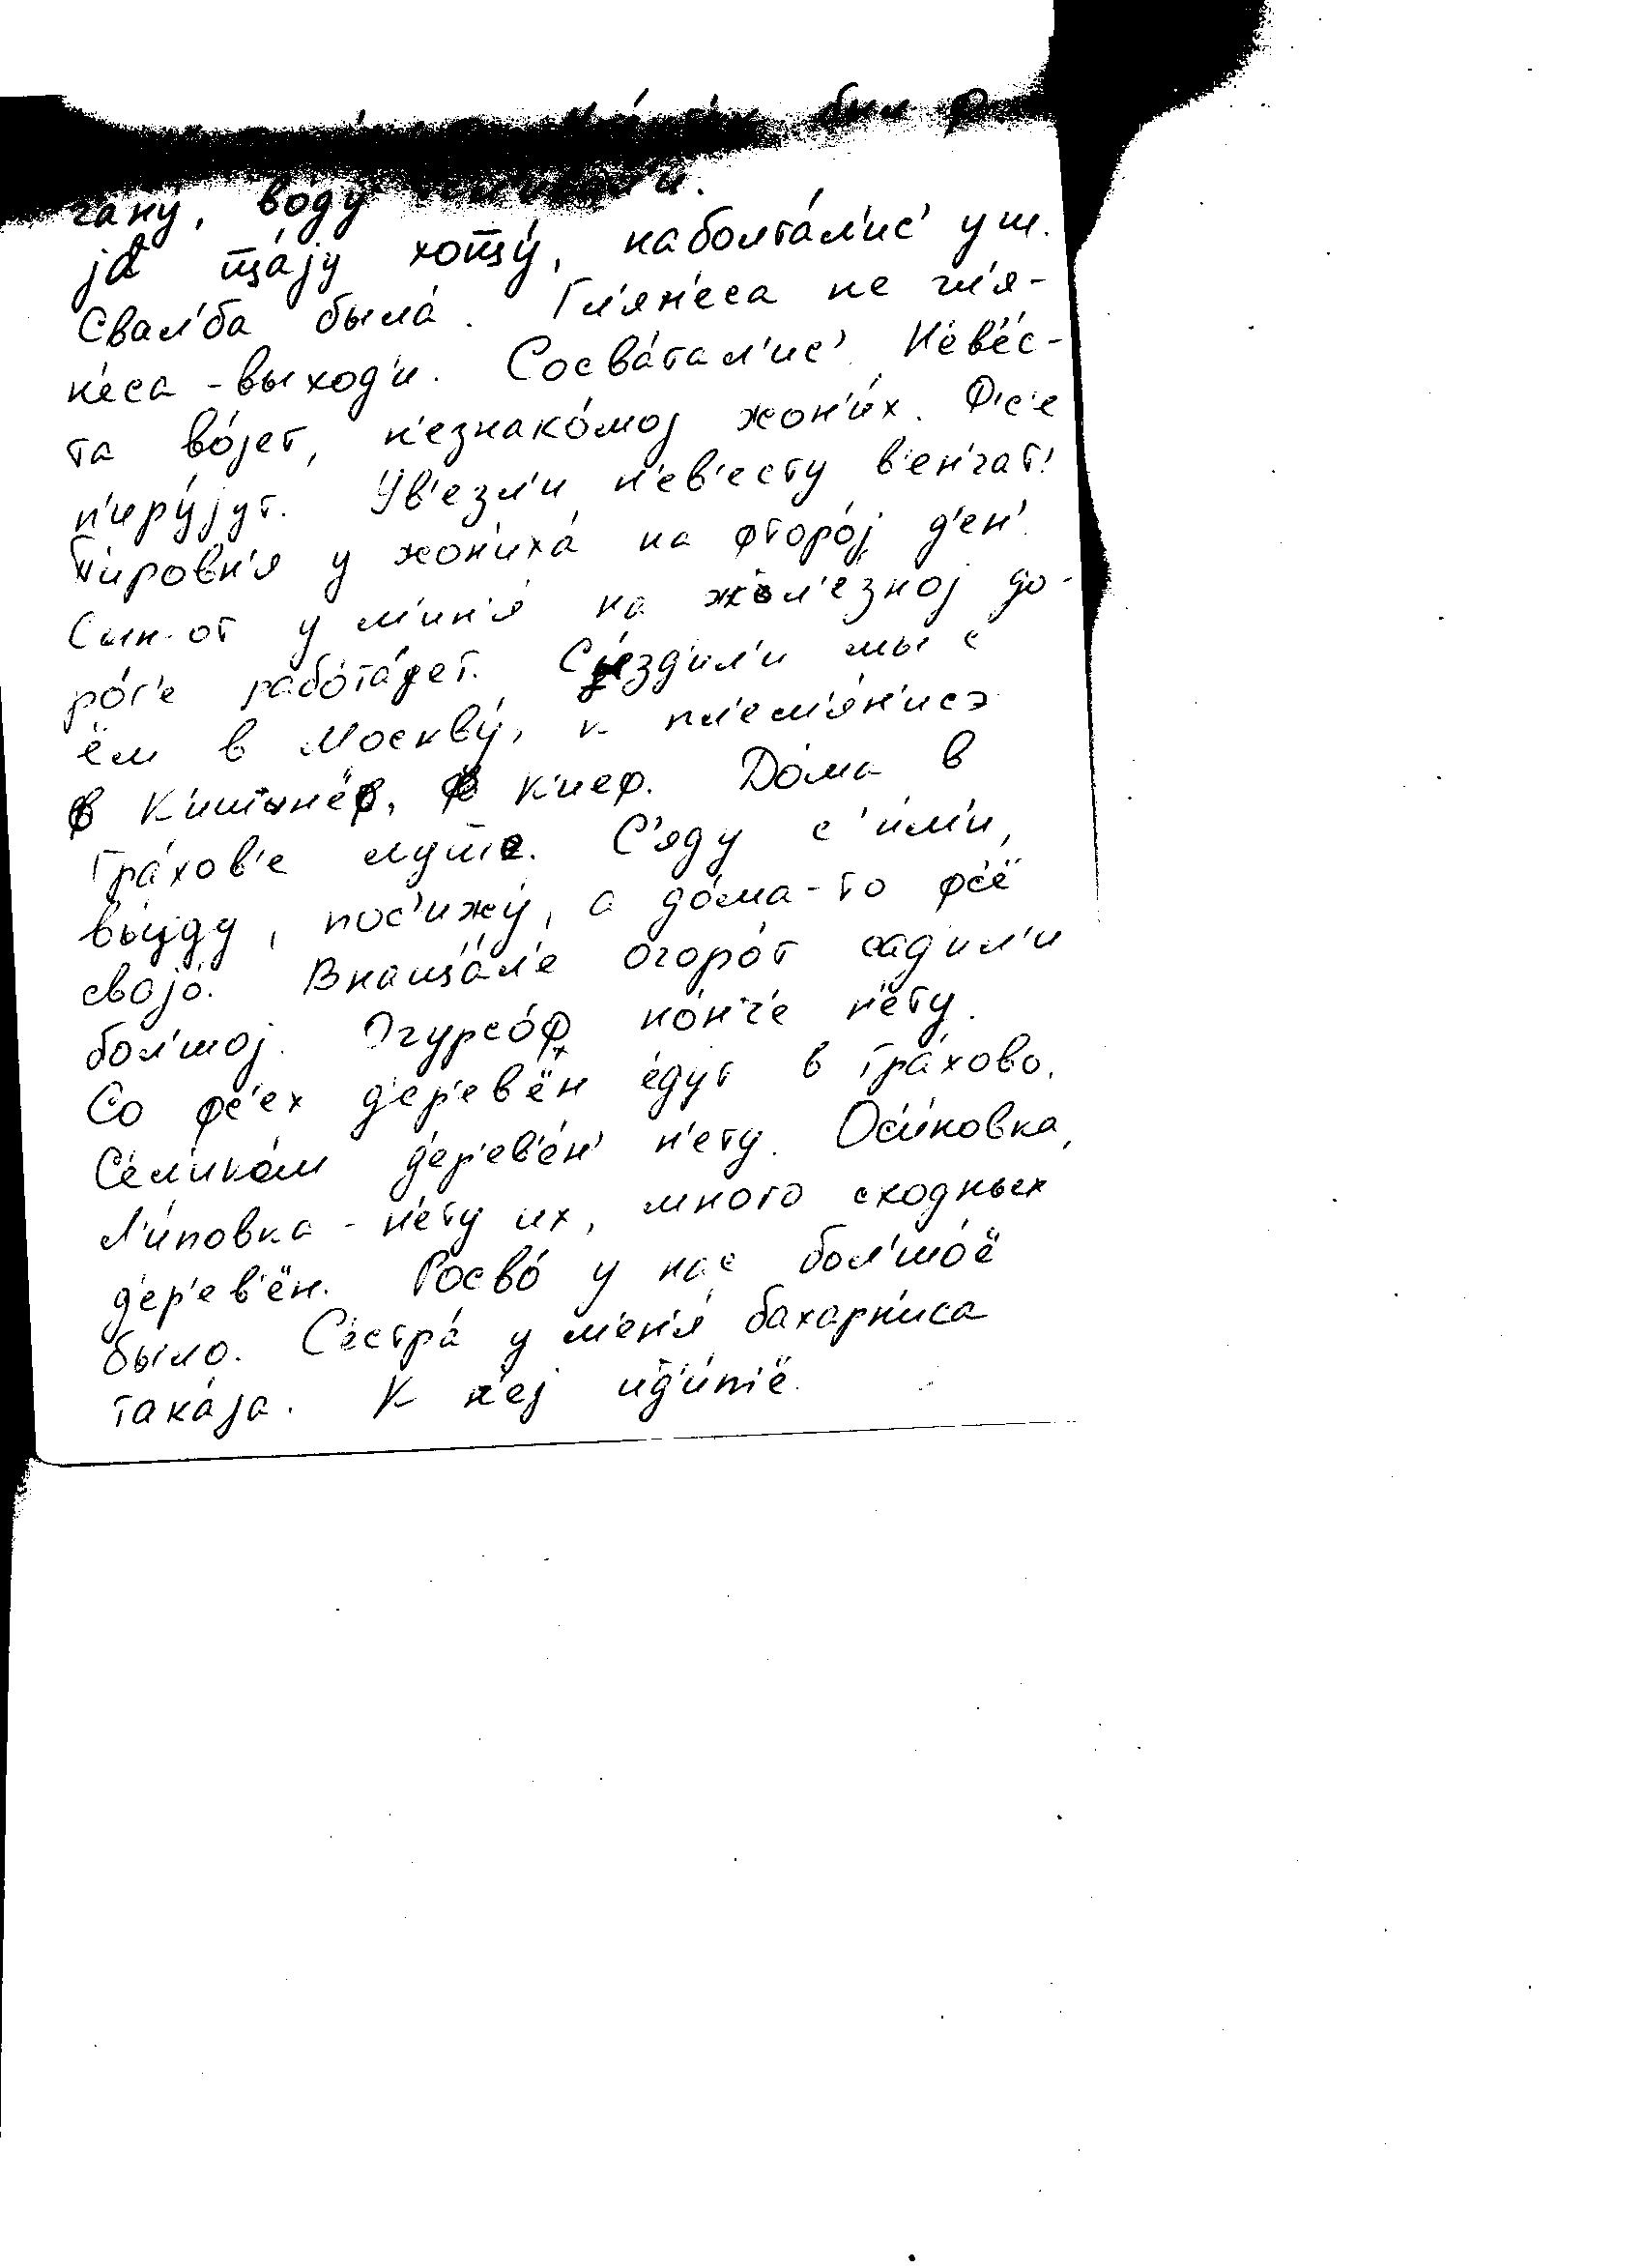 би
чану́, во́ду
ја щ́ају хощу́, наболта́л'ис' уш.
Свал'ба была́. Гл'ян'еса не гл'я-
н'еса - выход'и. Сосва́тал'ис'. Н'ев'ес-
та во́јет, н'езнако́мој жон'и́х. Ф'с'е
п'иру́јут. Ув'езл'и н'ев'есту в'ен'чат'.
П'ировн'я у жон'иха́ на фторо́ј д'ен'.
Сын-от у м'ин'я́ на жол'езној до-
ро́г'е рабо́та́јет. Сје́зд'ил'и мы с
ём в Москву́, к пл'ем'ян'исэ
в К'ишын'ёф, ф К'иеф. До́ма в
Гра́хов'е лутше. С'яду с' и́м'и,
вы́јду, пос'ижу́, а до́ма-то фс'ё
својо́. Внащ́ал'е огоро́т сад'ил'и
бол'шој. Огурсо́ф но́н'ч'е н'е́ту.
Со фс'ех д'ер'ев'ён е́дут в Гра́хово.
С'ел'ико́м д'ер'ев'ён' н'ету. Ос'и́новка,
Л'и́повка - н'е́ту их, много сходных
д'ер'ев'ён. Росво́ у нас бол'шо́ё
было. С'естра́ у м'ен'я́ бахарн'иса
така́ја. К н'еј ид'ит'ё.